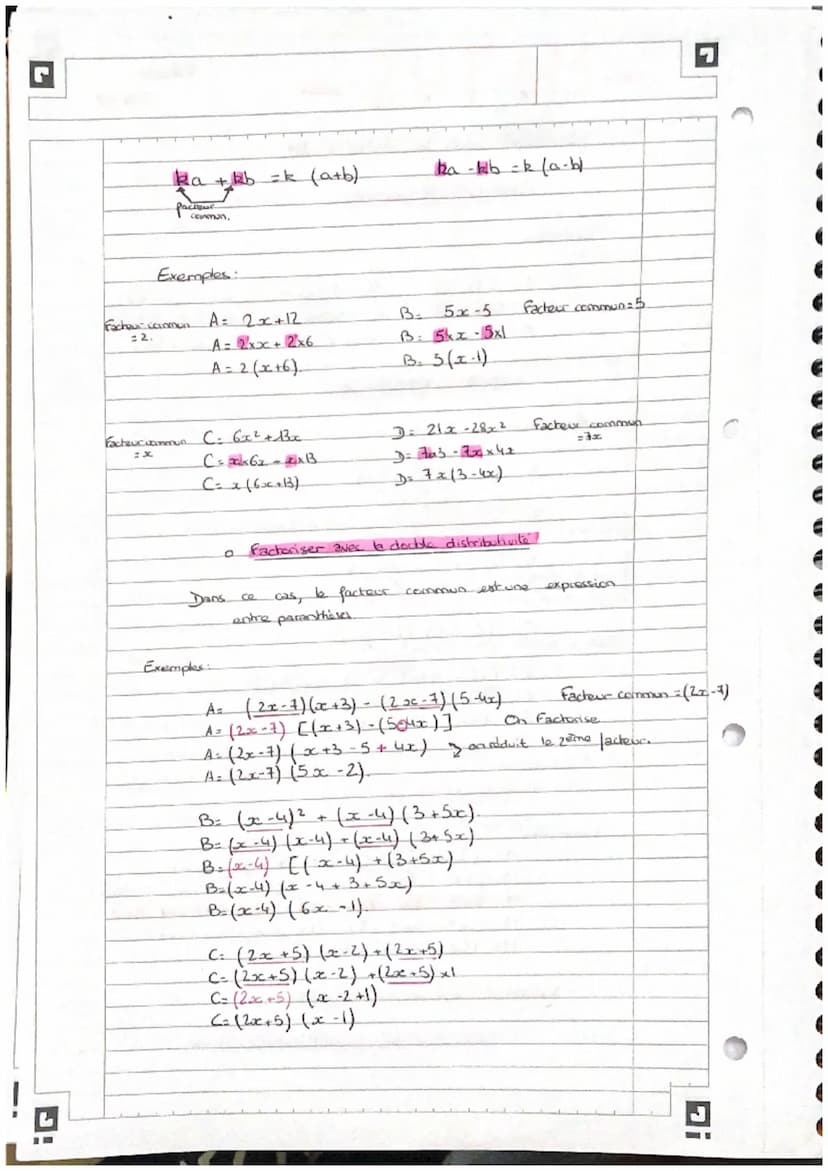 ka + kb = k (a+b)    ka - kb = k (a-b)
facteur
commun.
Exemples :
Facteur commun = 2.
A = 2x+12
A = 2×x + 2×6
A = 2 (x+6).
B = 5x - 5    Facteur commun = 5
B = 5×x - 5×1
B = 5(x-1)
Facteur commun = x
C = 6x² + 13x
C = x×6x + x×13
C = x (6x+13)
D = 21x - 28x²    Facteur commun = 7x
D = 7x×3 - 7x×4x
D = 7x(3-4x)
o Factoriser avec la double distributivité
Dans ce cas, le facteur commun est une expression
entre paranthèses
Exemples :
A = (2x-7)(x+3) - (2x-7)(5-4x)    Facteur commun = (2x-7)
A = (2x-7) [(x+3) - (5-4x)]    On Factorise
A = (2x-7) (x+3 -5 + 4x)    on réduit le 2ème facteur.
A = (2x-7) (5x -2).
B = (x-4)² + (x-4)(3+5x).
B = (x-4) (x-4) + (x-4) (3+5x)
B = (x-4) [(x-4) + (3+5x)
B = (x-4) (x - 4 + 3 + 5x)
B = (x-4) (6x -1).
C = (2x+5) (x-2) + (2x+5)
C = (2x+5) (x-2) + (2x+5) ×1
C = (2x+5) (x -2 +1)
C = (2x+5) (x -1)